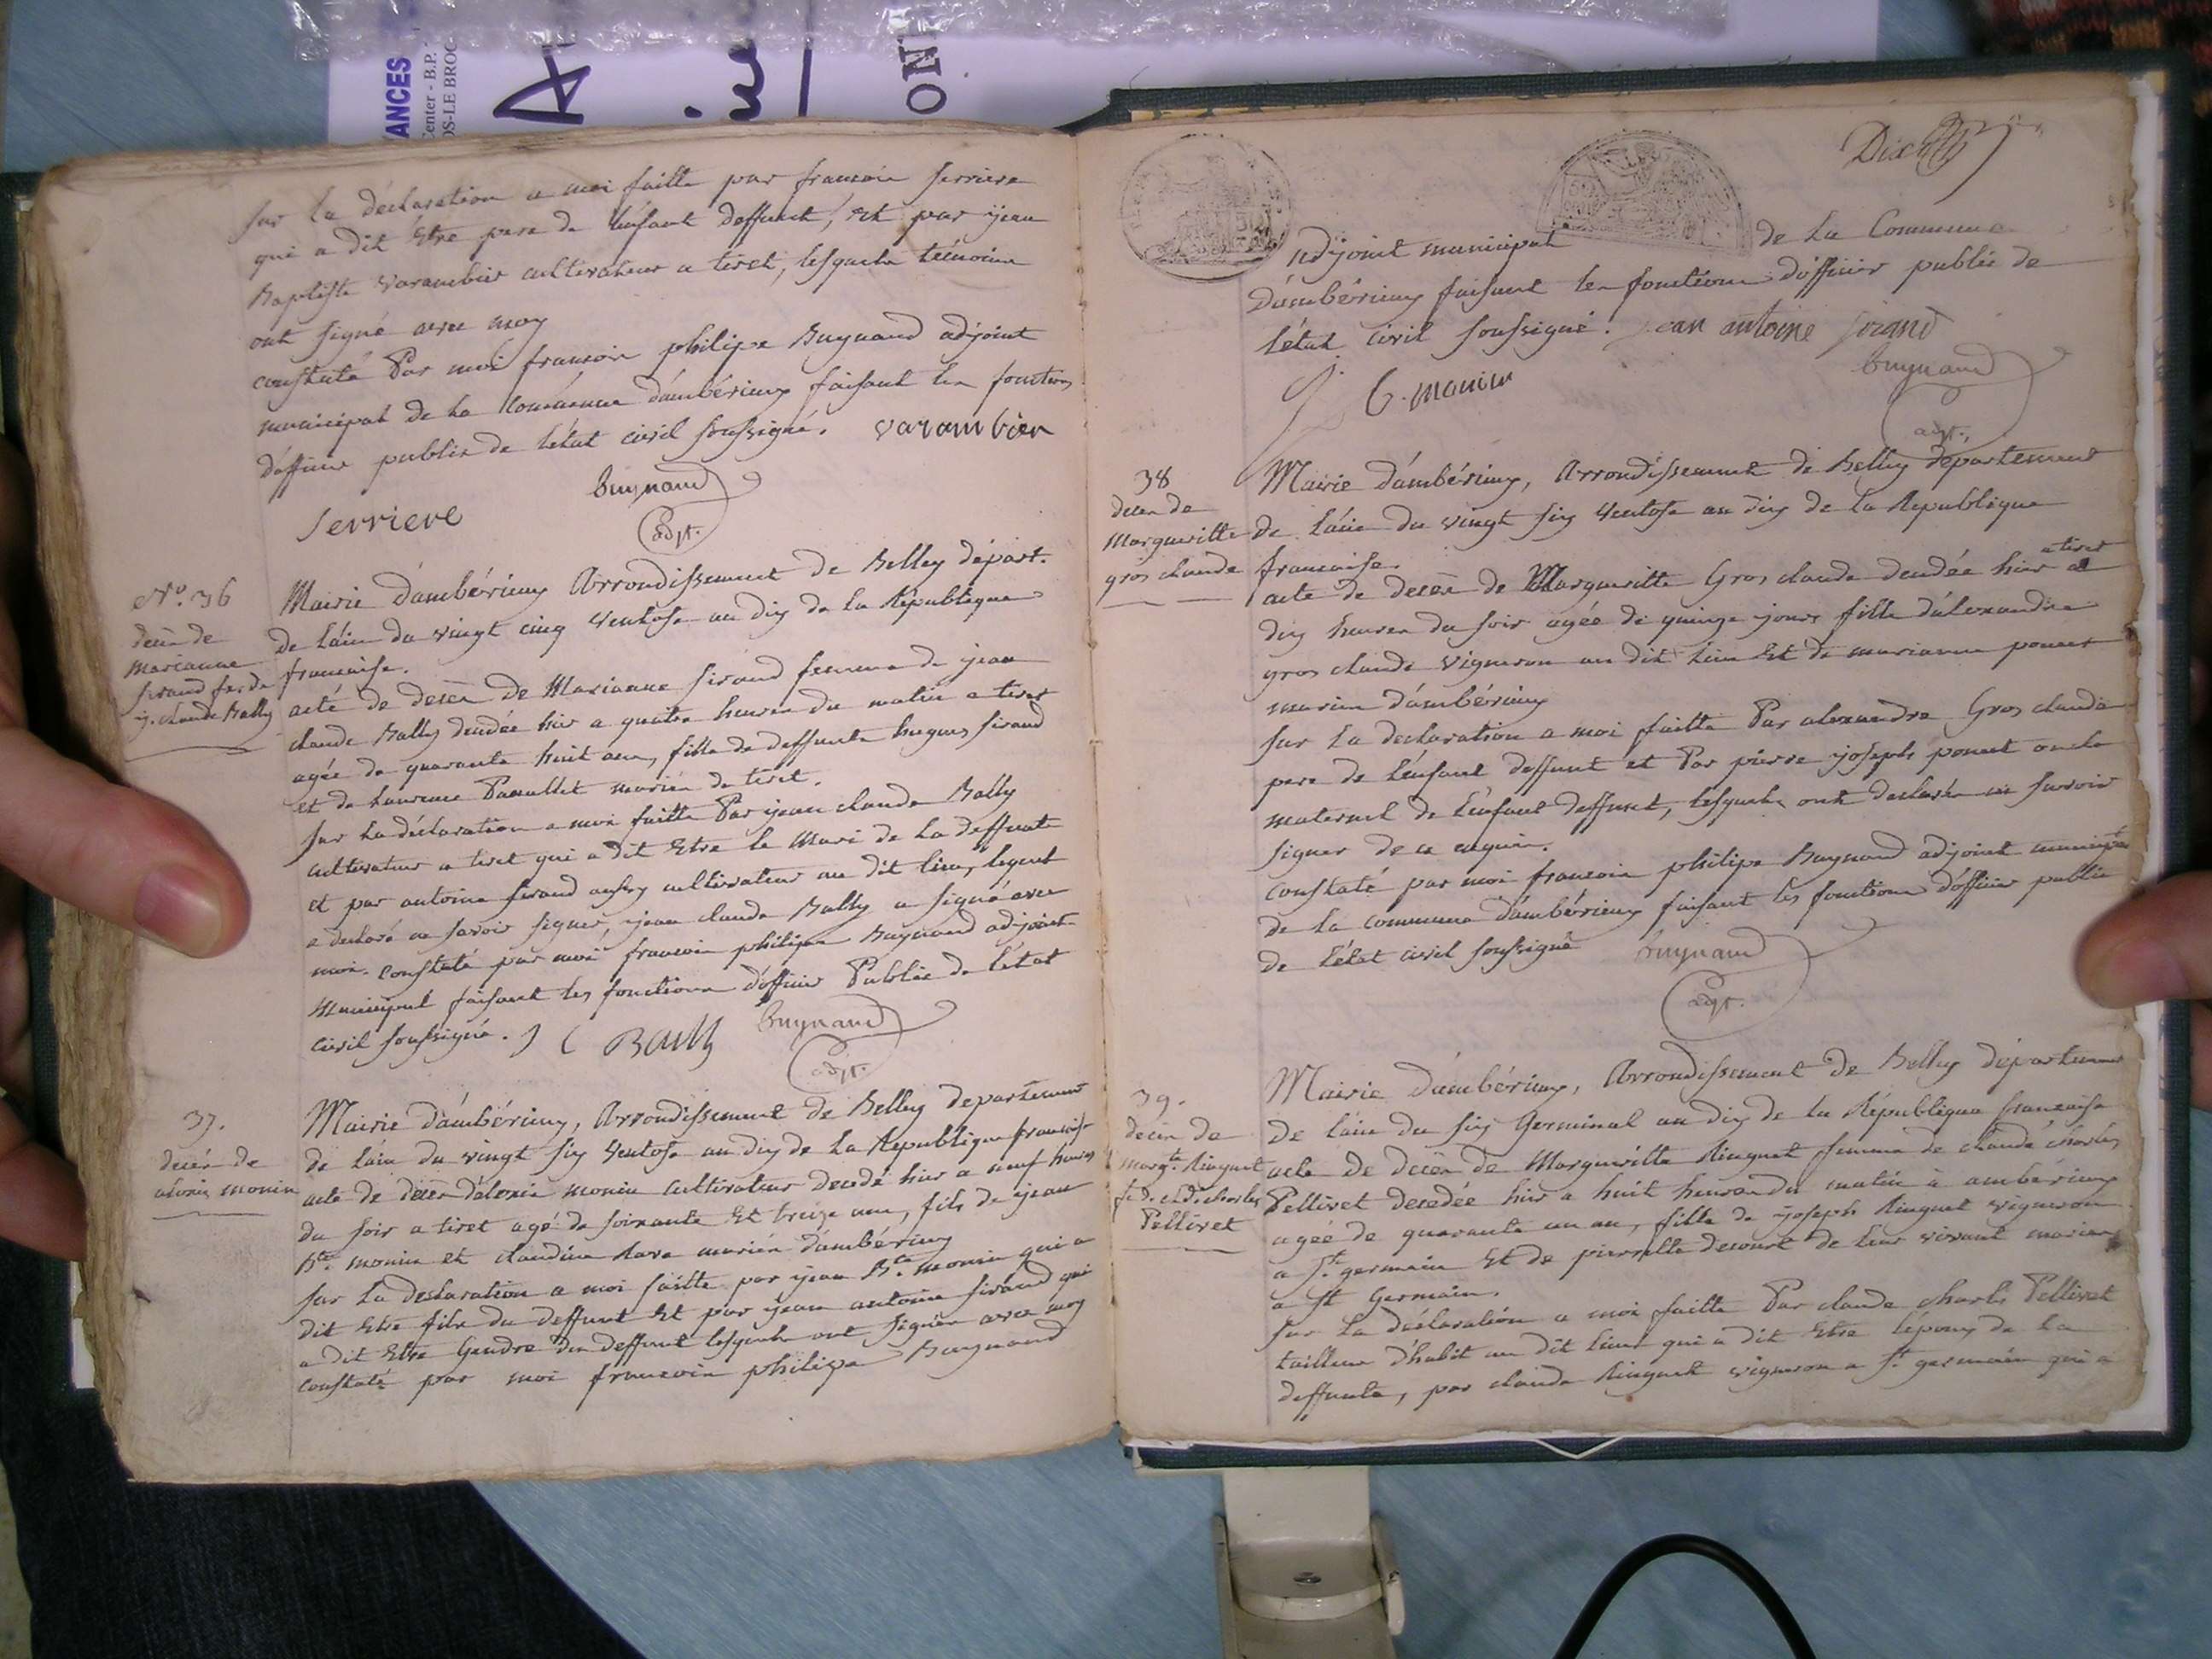 ANCES
Center - B.P.
OS-LE BROC
ON
sur la déclaration a moi faitte par francoin serriere
qui a dit Etre pere de L'enfant deffunt, et par jean
Baptiste varambier cultivateur a tiret, lesquels témoins
ont signé avec moy
constaté Par moi francoin philipe Buynand adjoint
municipal de la Commune d'ambérieux faisant les fonctions
d'officier public de l'état civil soussigné. varambier
Buynand
adjt.
serriere
No. 36
decès de
marianne
sirand fe. de
j. claude Bally
Mairie d'ambérieux Arrondissement de Belley départ.
de l'ain du vingt cinq Ventose an dix de la République
francaise.
acte de decès de Marianne sirand femme de jean
claude Bally decedée hier a quatre heures du matin a tiret
agée de quarante huit ans, fille de deffunts hugues sirand
et de Laurence mariés de tiret.
sur la déclaration a moi faitte Par jean claude Bally
cultivateur a tiret qui a dit Etre le Mari de la deffunte
et par antoine sirand cultivateur au dit lieu, lequel
a declaré ne savoir signer, jean claude Bally a signé avec
moi. constaté par moi francoin philipe Buynand adjoint
Municipal faisant les fonctions d'officier Public de l'état
civil soussigné. J C Bally
Buynand
adjt.
37.
decès de
alexis monin
Mairie d'ambérieux, Arrondissement de Belley departement
de l'ain du vingt six Ventose an dix de la République francaise
acte de decès d'alexis monin cultivateur decedé hier a neuf heures
du soir a tiret agé de soixante Et treize ans, fils de jean
Bte. monin et claudine Rava mariés d'ambérieux
sur la déclaration a moi faitte par jean Bte. monin qui a
dit Etre fils du deffunt Et par jean antoine sirand qui
a dit Etre Gendre du deffunt lesquels ont signés avec moy
constaté par moi francoin philipe Buynand
Dix
adjoint municipal de la Commune
d'ambérieux faisant les fonctions d'officier public de
l'état civil soussigné. jean antoine sirand
Buynand
adjt.
J. B. monin
38
decès de
Margueritte
gros claude
Mairie d'ambérieux, Arrondissement de Belley département
de l'ain du vingt six Ventose an dix de la République
francaise.
acte de decès de Margueritte Gros claude decedée hier a tiret a
dix heures du soir agée de quinze jours fille d'alexandre
gros claude vigneron au dit lieu Et de marianne ponset
mariés d'ambérieux
sur La declaration a moi faitte Par alexandre Gros claude
pere de L'enfant deffunt et Par pierre joseph ponset oncle
maternel de L'enfant deffunt, lesquels ont declarés ne savoir
signer de ce enquis.
constaté par moi francoin philipe Buynand adjoint municipal
de la commune d'ambérieux faisant les fonctions d'officier public
de l'état civil soussigné
Buynand
adjt.
39.
decès de
margte. Ringuet
fe. d. cl. charles
Pellivet
Mairie d'ambérieux, Arrondissement de Belley département
de l'ain du six Germinal an dix de la République francaise
acte de decès de Margueritte Ringuet femme de claude charles
Pellivet decedée hier a huit heures du matin à ambérieux
agée de quarante un an, fille de joseph Ringuet vigneron
a St. germain Et de pierrette de leur vivant mariés
a St Germain.
sur La déclaration a moi faitte Par claude charles Pellivet
tailleur d'habit au dit lieu qui a dit Etre l'époux de la
deffunte, par claude Ringuet vigneron a St. germain qui a